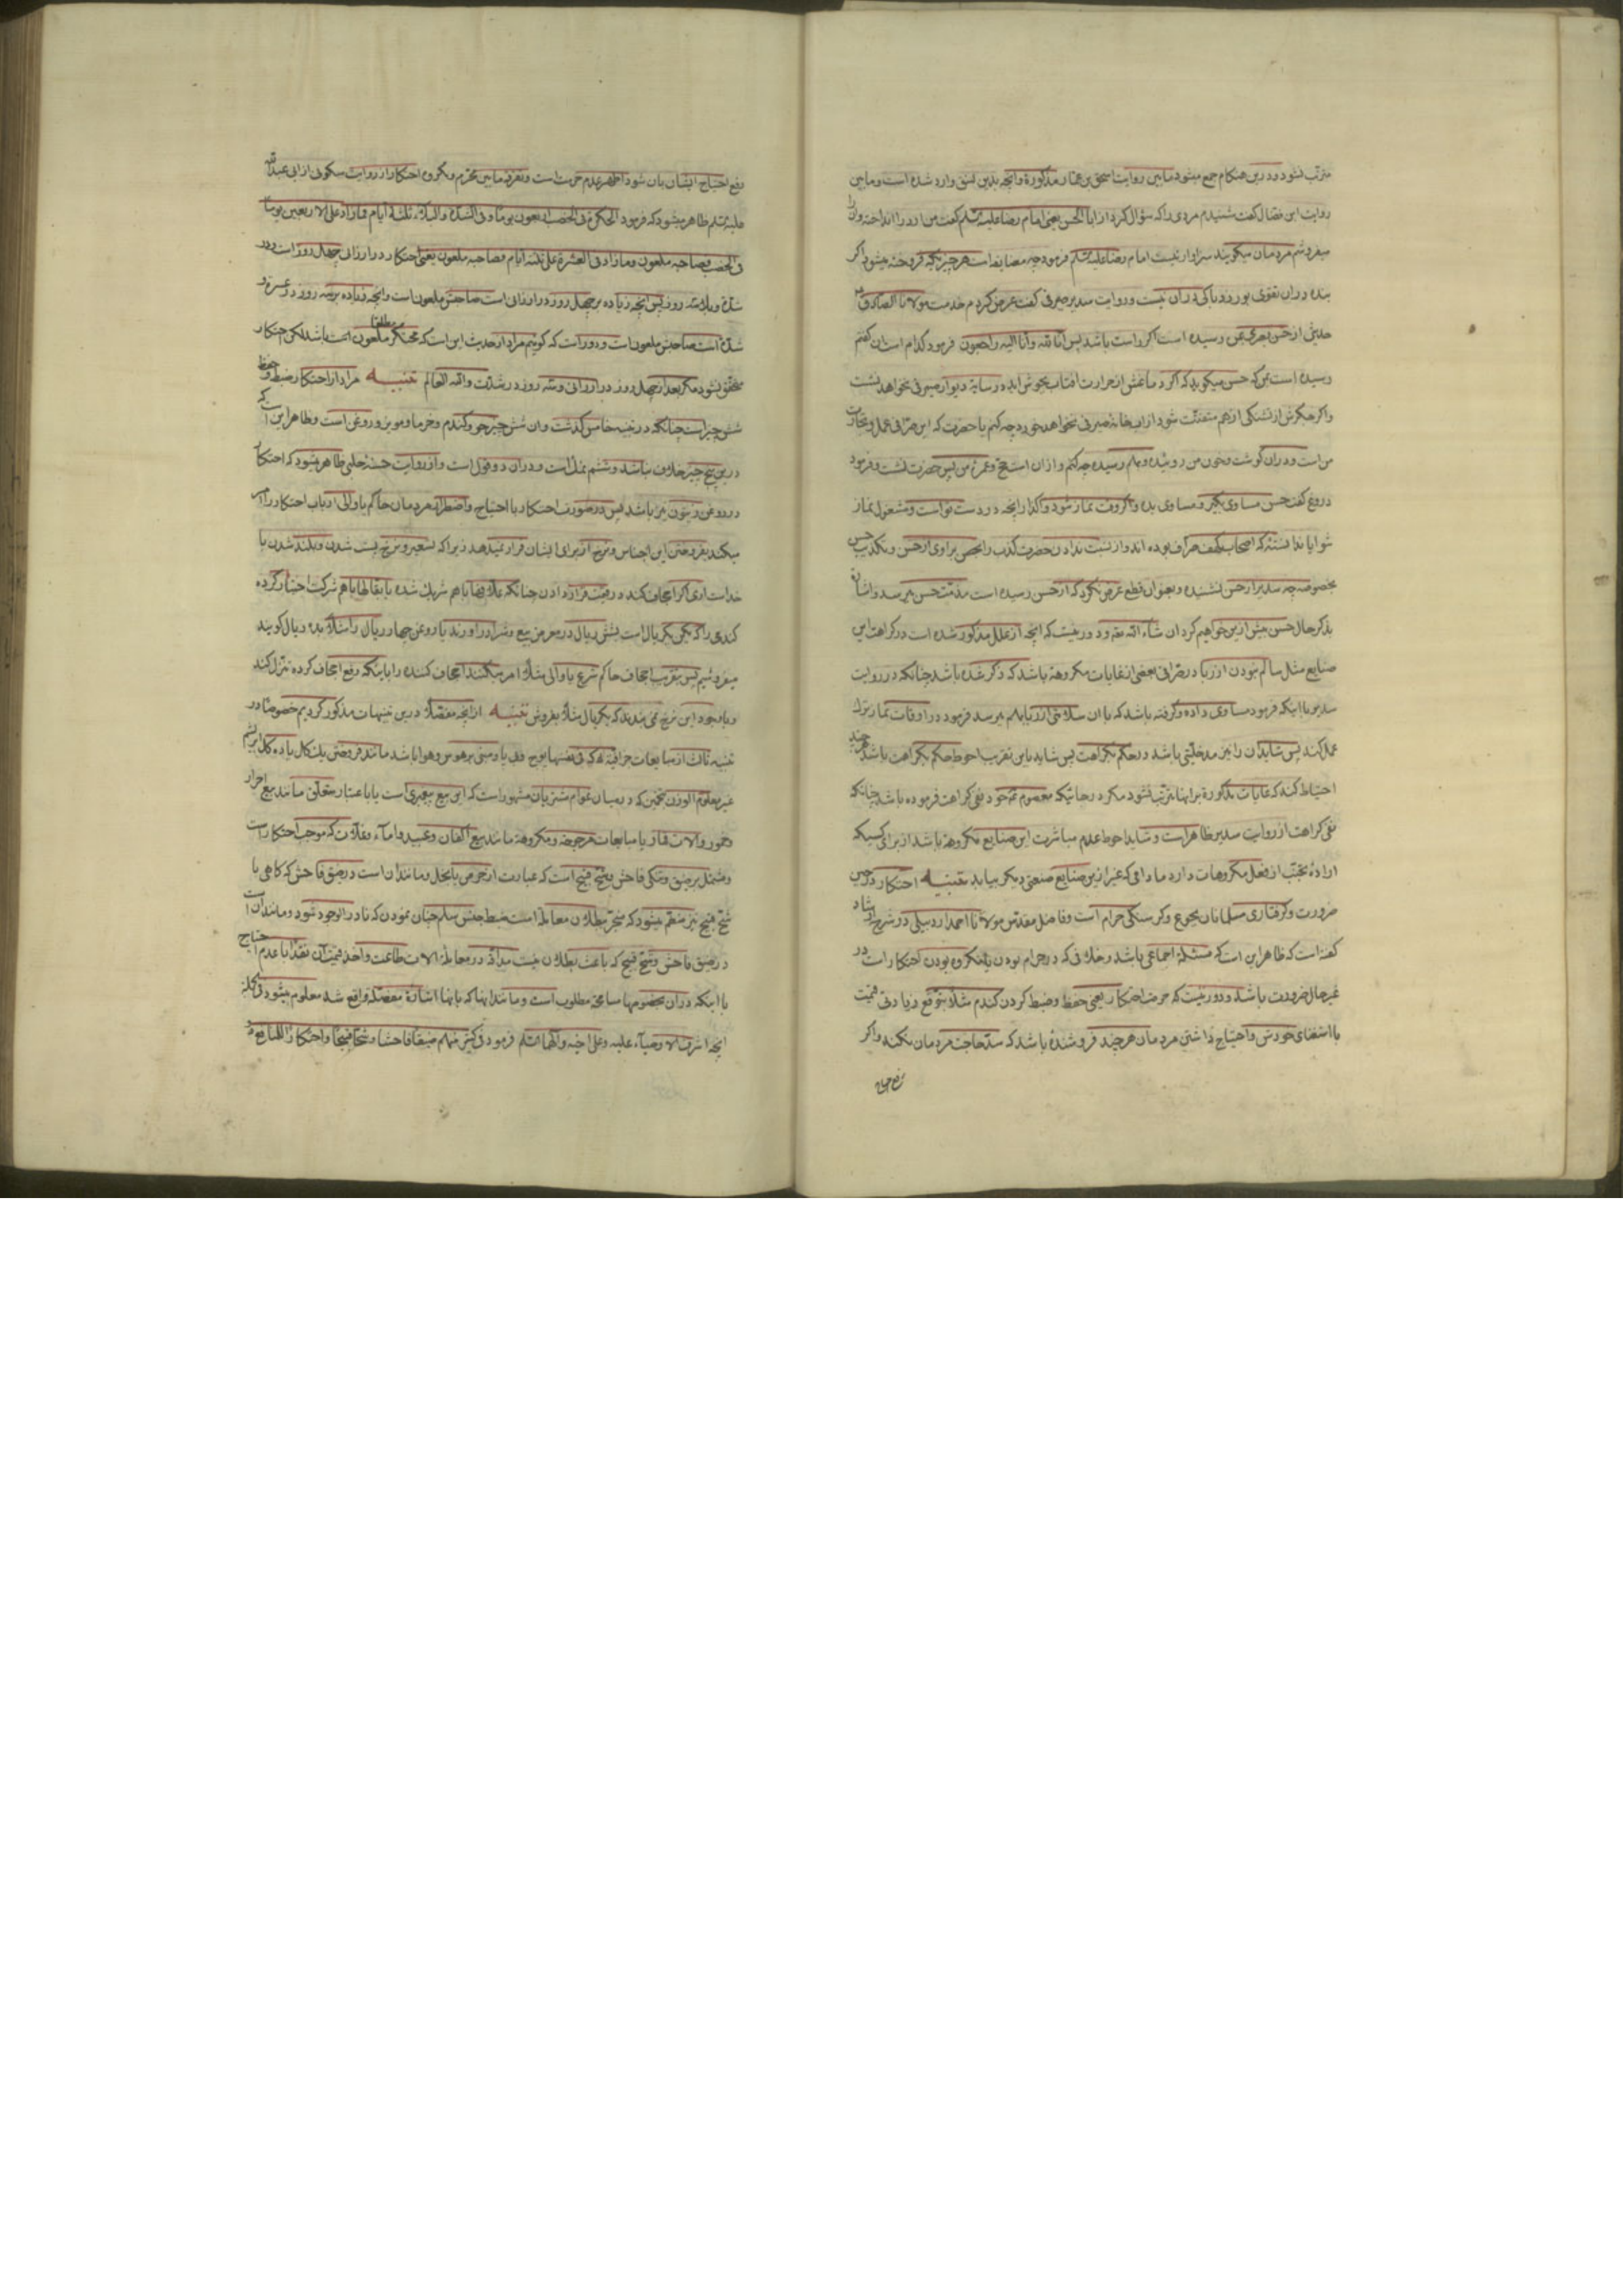 مترتب نشود و درین هنگام جمع میشود مابین روایت اسحق بن عمار مذکورة وآنچه بدین نسق وارد شده است ومابین
روایت ابن فضال گفت شنیدم مردی را که سؤال کرد از ابا الحسن یعنی امام رضا علیه السلم گفت من آرد را انداخته و آنرا
میفروشم مردمان میگویند سزاوار نیست امام رضا علیه السلم فرمود چه مضایقه است هر چیزیکه فروخته میشود اگر
بنده در آن تقوی بورزد باکی در آن نیست و روایت سدیر صیرفی گفت عرض کردم خدمت مولانا الصادق
حدیثی از حسن بصری بمن رسیده است اگر راست باشد پس انا لله وانا الیه راجعون فرمود کدام است آن گفتم
رسیده است بمن که حسن میگوید که اگر دماغش از حرارت آفتاب بجوش آید در سایهٔ دیوار صیرفی نخواهد نشست
واگر جگرش از تشنگی از هم متفتت شود از آب خانهٔ صیرفی نخواهد خورد چه کنم یا حضرت که این صرافی عمل وتجارت
من است و در آن گوشت وخون من روییده وبهم رسیده چه کنم و از آن است حج وعمرهٔ من پس حضرت نشست وفرمود
دروغ گفت حسن مساوی بگیر و مساوی بده واگر وقت نماز شود واگذار آنچه در دست تو است ومشغول نماز
شو آیا ندانستهٔ که اصحاب کهف صراف بوده اند و از نسبت ندادن حضرت کذب را بحسن براوی از حسن وتکذیب حسن
بخصوصه چه سدیر از حسن نشنیده وبعنوان قطع عرض نکرد که از حسن رسیده است مذمت حسن میرسد واشاره
بذکر حال حسن بیش ازین خواهیم کرد ان شاء الله تعالی و دور نیست که آنچه از علل مذکور شده است در کراهت این
صنایع مثل سالم نبودن از ربا در صرافی بعضی از غایات مکروهة باشد که ذکر شده باشد چنانکه در روایت
سدیر با اینکه فرمود مساوی داده وگرفته باشد که با آن سلامتی از ربا بهم میرسد فرمود در اوقات نماز ترک
عمل کند پس شاید آن را نیز مدخلیتی باشد در حکم بکراهت پس شاید باین تقریب احوط حکم بکراهت باشد هر چند
احتیاط کند که غایات مذکورة بر اینها مترتب نشود مگر در جائیکه معصوم خود نفی کراهت فرموده باشد چنانکه
نفی کراهت از روایت سدیر ظاهر است وشاید احوط عدم مباشرت این صنایع مکروهة باشد از برای کسیکه
ارادهٔ تجنب از فعل مکروهات دارد مادامی که غیر ازین صنایع صنعتی دیگر بیابد تنبیه احتکار در حین
ضرورت وگرفتاری مسلمانان بجوع وگرسنگی حرام است وفاضل مقدس مولانا احمد اردبیلی در شرح ارشاد
گفته است که ظاهر این است که مسئلة اجماعی باشد وخلافی که در حرام بودن یا مکروه بودن احتکار است در
غیر حال ضرورت باشد و دور نیست که حرمت احتکار یعنی حفظ وضبط کردن گندم مثلا بتوقع زیادتی قیمت
با استغنای خودش واحتیاج داشتن مردمان هر چند فروشندهٔ باشد که سد حاجت مردمان نکند واگر
رفع احتیاج ایشان بان شود اظهر عدم حرمت است وتفرقه مابین محرم ومکروه احتکار از روایت سکونی از ابی عبدالله
علیه السلم ظاهر میشود که فرمود الحکرة فی الخصب اربعون یوما وفی الشدة والبلاء ثلثة ایام فما زاد علی الاربعین یوما
فی الخصب فصاحبه ملعون وما زاد فی العسرة علی ثلثة ایام فصاحبه ملعون یعنی احتکار در ارزانی چهل روز است ودر
شدة وبلا سه روز پس آنچه زیاده بر چهل روز در ارزانی است صاحبش ملعون است وآنچه زیاده بر سه روز در عسرة و
شدة است صاحبش ملعون است و دور است که گوییم مراد از حدیث این است که محتکر مطلقا ملعون است باشد لکن احتکار
محقق نشود مگر بعد از چهل روز در ارزانی وسه روز در شدت والله العالم تنبیه مراد از احتکار ضبط وحفظ
شش چیز است چنانکه در تنبیه خامس گذشت وآن شش چیز جو وگندم وخرما ومویز و روغن است وظاهر این است که
درین پنج چیز خلاف نباشد وششم نمک است و در آن دو قول است واز روایت حسنهٔ حلبی ظاهر میشود که احتکار
در روغن زیتون نیز باشد پس در صورت احتکار با احتیاج واضطرار مردمان حاکم یا والی ارباب احتکار را امر
میکند بفروختن این اجناس ونرخ از برای ایشان قرار نمیدهد زیرا که تسعیر ونرخ پست شدن وبلند شدن با
خداست آری اگر اجحاف کند در قیمت قرار دادن چنانکه علافها باهم شریک شده یا بقالها باهم شرکت اختیار کرده
گندمی را که یکی بیکریال است بشش ریال در معرض بیع وشرا در آورند یا روغن چهار ریال را مثلا بده ریال گویند
میفروشیم پس بتقریب اجحاف حاکم شرع یا والی مثلا امر میکنند اجحاف کننده را باینکه رفع اجحاف کرده تنزل کند
وباوجود این نرخ نمی بندند که بیکریال مثلا بفروش تنبیه از آنچه مفصلا درین تنبیهات مذکور کردیم خصوصا در
غیر معلوم الوزن بتخمین که درمیان عوام مشتریان مشهور است که این بیع بیعیری است یا باعتبار متعلق مانند بیع احرار
وخمور وآلات قمار یا مبایعات مرجوحه ومکروهة مانند بیع اکفان وعبید واماء وغلات که موجب احتکار است
ومشتمل بر ضیق وتنگی فاحش وشح قبیح است که عبارت از حرص یا بخل ومانند آن است در ضیق فاحش که گاهی با
شح قبیح نیز منضم میشود که منجر ببطلان معاملة است ضبط جنس سلم چنان نمودن که نادر الوجود شود ومانند آن است
در ضیق فاحش وشح قبیح که باعث بطلان نیست مداقه در معاملهٔ آلات طاعت واخذ قیمت آن نقدا با عدم احتیاج
با اینکه در آن بخصوصها مسامحة مطلوب است ومانند اینها که باینها اشارة مفصلة واقع شد معلوم میشود فی الجملة
آنچه اشرف الاوصیاء علیه وعلی اخیه وآلهما السلم فرمود فی کثیر منهم ضیقا فاحشا وشحا قبیحا واحتکارا للمنافع